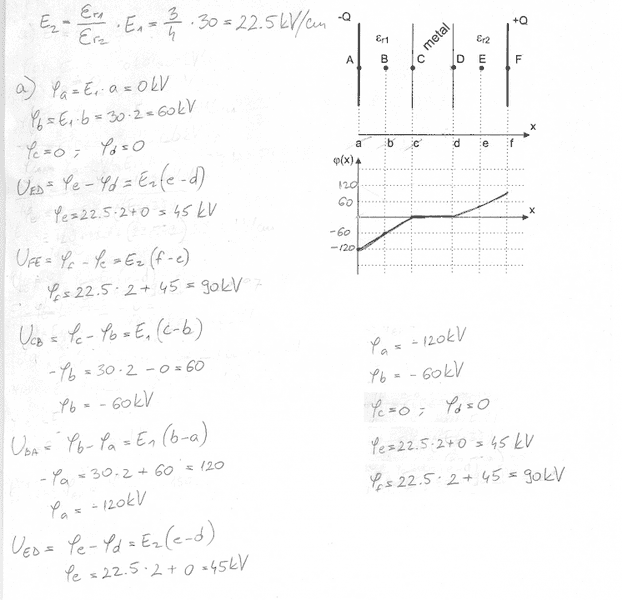 E₂ = εr1/εr2 · E₁ = 3/4 · 30 = 22.5 kV/cm
a) φa = E₁ · a = 0 kV
φb = E₁ · b = 30 · 2 = 60 kV
φc = 0 ; φd = 0
UED = φe - φd = E₂ (e - d)
φe = 22.5 · 2 + 0 = 45 kV
UFE = φf - φe = E₂ (f - e)
φf = 22.5 · 2 + 45 = 90 kV
UCB = φc - φb = E₁ (c - b)
-φb = 30 · 2 - 0 = 60
φb = - 60 kV
UBA = φb - φa = E₁ (b - a)
-φa = 30 · 2 + 60 = 120
φa = - 120 kV
UED = φe - φd = E₂ (e - d)
φe = 22.5 · 2 + 0 = 45 kV
-Q +Q
εr1 metal εr2
A B C D E F
x
a b c d e f
φ(x)
120
60
x
-60
-120
φa = - 120 kV
φb = - 60 kV
φc = 0 ; φd = 0
φe = 22.5 · 2 + 0 = 45 kV
φf = 22.5 · 2 + 45 = 90 kV